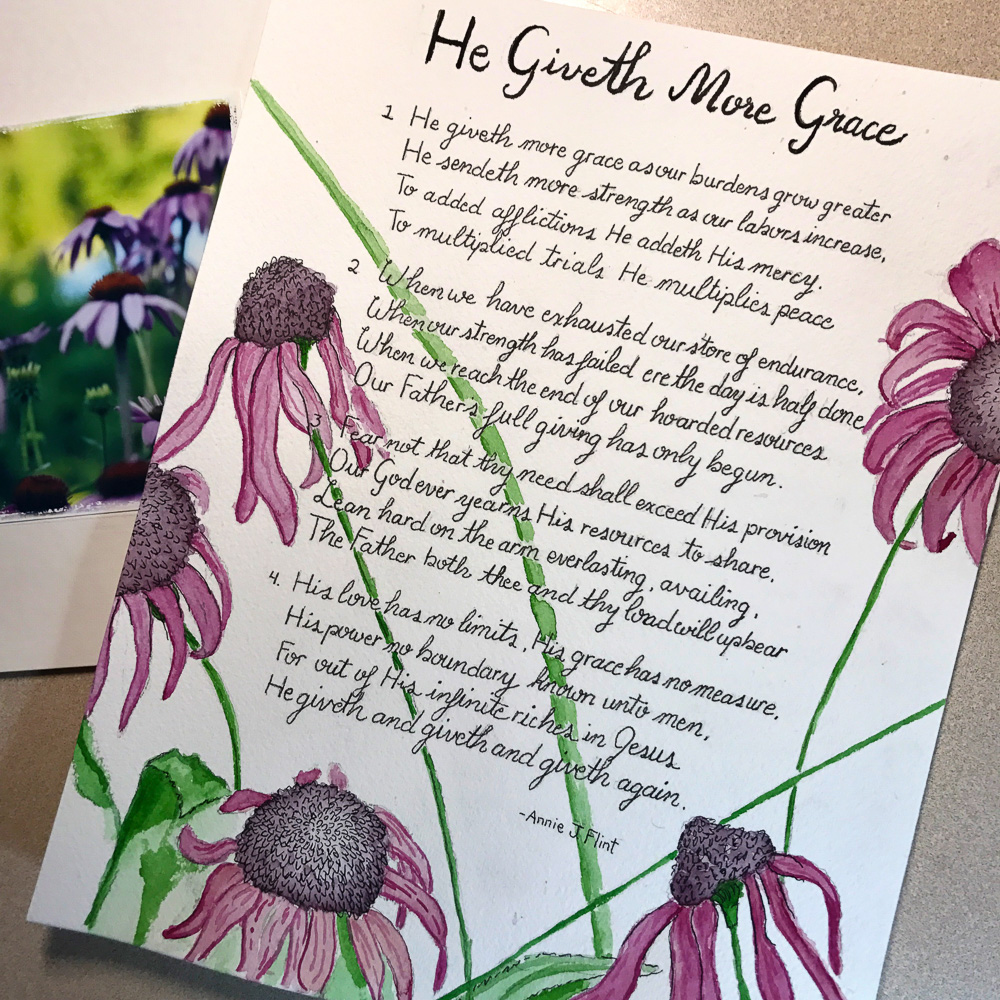 He Giveth More Grace
1 He giveth more grace as our burdens grow greater
He sendeth more strength as our labors increase,
To added afflictions He addeth His mercy.
To multiplied trials He multiplies peace
2 When we have exhausted our store of endurance,
When our strength has failed ere the day is half done,
When we reach the end of our hoarded resources
Our Father's full giving has only begun.
3 Fear not that thy need shall exceed His provision
Our God ever yearns His resources to share.
Lean hard on the arm everlasting, availing,
The Father both thee and thy load will upbear
4. His love has no limits, His grace has no measure,
His power no boundary known unto men,
For out of His infinite riches in Jesus
He giveth and giveth and giveth again.
-Annie J. Flint